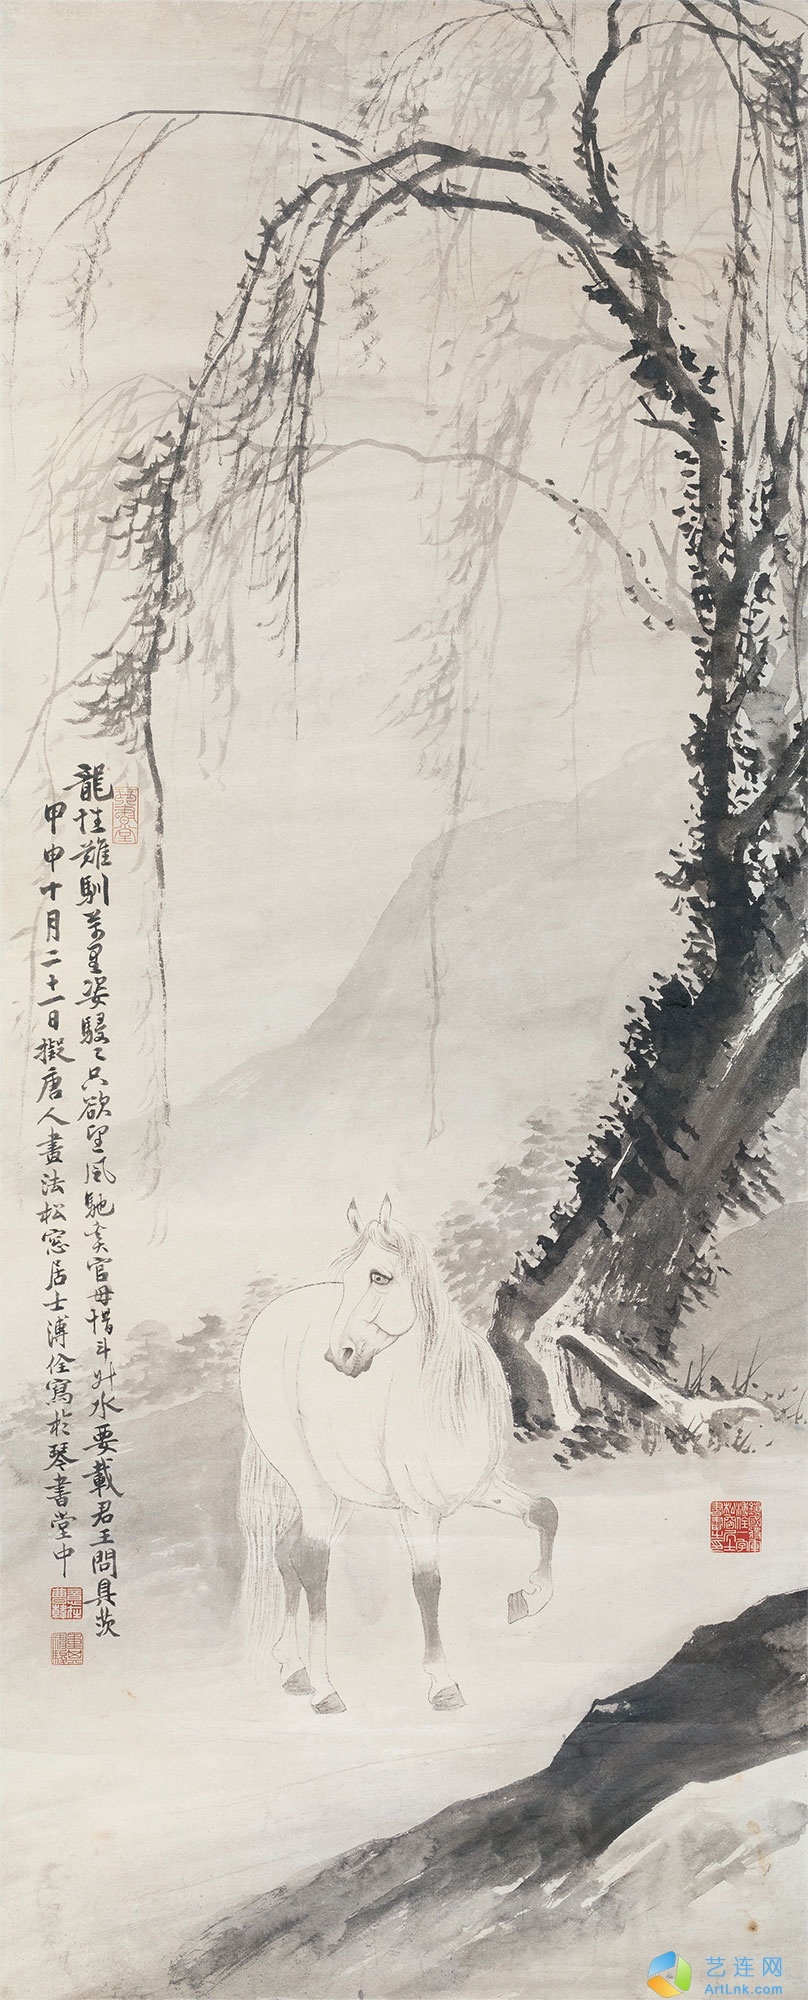 龍性難馴萬里姿駸〻只欲望風馳奚官毋惜斗升水要載君王問具茨
甲申十月二十一日擬唐人畫法松窓居士溥佺寫於琴書堂中
琴書堂
艺连网
ArtLnk.com